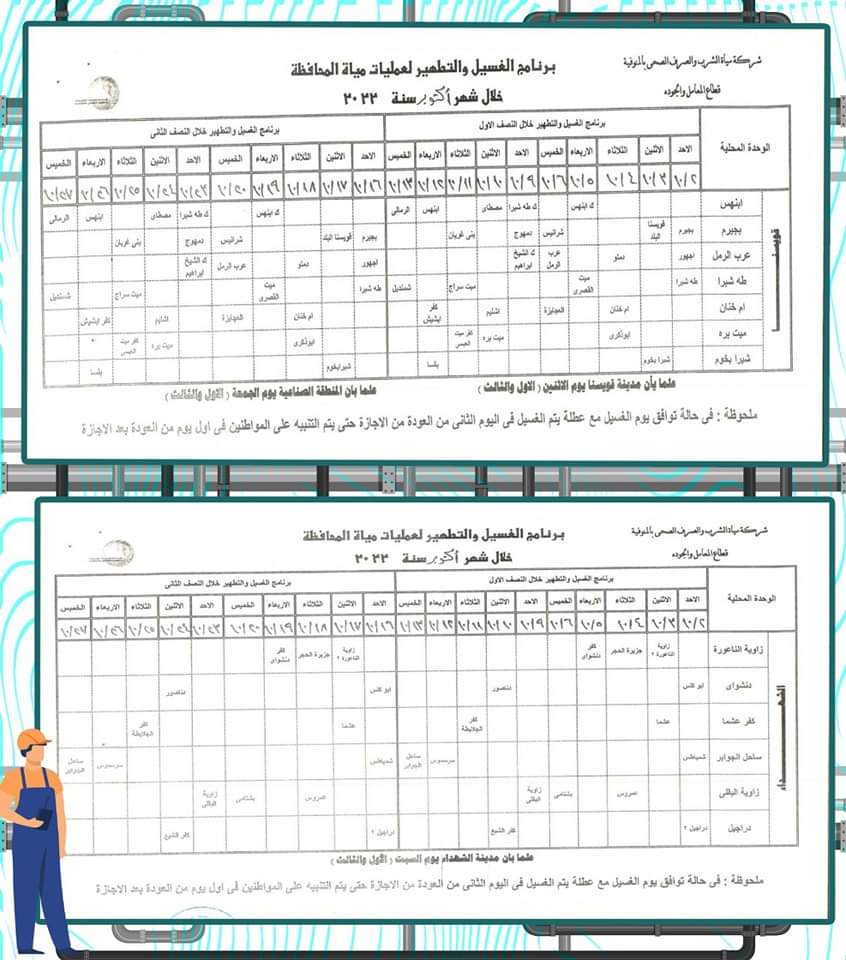 شركة مياة الشرب والصرف الصحى بالمنوفية
قطاع المعامل والجوده
برنامج الغسيل والتطهير لعمليات مياة المحافظة
خلال شهر أكتوبر سنة ٢٠٢٢
الوحدة المحلية
برنامج الغسيل والتطهير خلال النصف الاول
برنامج الغسيل والتطهير خلال النصف الثانى
الاحد الاثنين الثلاثاء الاربعاء الخميس الاحد الاثنين الثلاثاء الاربعاء الخميس الاحد الاثنين الثلاثاء الاربعاء الخميس الاحد الاثنين الثلاثاء الاربعاء الخميس
١٠/٢ ١٠/٣ ١٠/٤ ١٠/٥ ١٠/٦ ١٠/٩ ١٠/١٠ ١٠/١١ ١٠/١٢ ١٠/١٣ ١٠/١٦ ١٠/١٧ ١٠/١٨ ١٠/١٩ ١٠/٢٠ ١٠/٢٣ ١٠/٢٤ ١٠/٢٥ ١٠/٢٦ ١٠/٢٧
قويسنا
ابنهس ك ابنهس ك طه شبرا مصطاى ابنهس الرمالى ك ابنهس ك طه شبرا مصطاى ابنهس الرمالى
بجيرم بجيرم قويسنا البلد شرانيس دمهوج بنى غريان بجيرم قويسنا البلد شرانيس دمهوج بنى غريان
عرب الرمل اجهور دملو عرب الرمل ك الشيخ ابراهيم اجهور دملو عرب الرمل ك الشيخ ابراهيم
طه شبرا طه شبرا ميت القصرى ميت سراج شمنديل طه شبرا ميت القصرى ميت سراج شمنديل
ام خنان ام خنان العجايزة اشليم كفر ابشيش ام خنان العجايزة اشليم كفر ابشيش
ميت بره ابوذكرى ميت بره كفر ميت العبسى ابوذكرى ميت بره كفر ميت العبسى
شبرا بخوم شبرا بخوم بلسا شبرابخوم بلسا
علما بأن مدينة قويسنا يوم الاثنين ( الاول والثالث )
علما بان المنطقة الصناعية يوم الجمعة ( الاول والثالث )
ملحوظة : فى حالة توافق يوم الغسيل مع عطلة يتم الغسيل فى اليوم الثانى من العودة من الاجازة حتى يتم التنبيه على المواطنين فى اول يوم من العودة بعد الاجازة
شركة مياة الشرب والصرف الصحى بالمنوفية
قطاع المعامل والجوده
برنامج الغسيل والتطهير لعمليات مياة المحافظة
خلال شهر أكتوبر سنة ٢٠٢٢
الوحدة المحلية
برنامج الغسيل والتطهير خلال النصف الاول
برنامج الغسيل والتطهير خلال النصف الثانى
الاحد الاثنين الثلاثاء الاربعاء الخميس الاحد الاثنين الثلاثاء الاربعاء الخميس الاحد الاثنين الثلاثاء الاربعاء الخميس الاحد الاثنين الثلاثاء الاربعاء الخميس
١٠/٢ ١٠/٣ ١٠/٤ ١٠/٥ ١٠/٦ ١٠/٩ ١٠/١٠ ١٠/١١ ١٠/١٢ ١٠/١٣ ١٠/١٦ ١٠/١٧ ١٠/١٨ ١٠/١٩ ١٠/٢٠ ١٠/٢٣ ١٠/٢٤ ١٠/٢٥ ١٠/٢٦ ١٠/٢٧
الشهداء
زاوية الناعورة زاوية الناعورة ٢ جزيرة الحجر كفر دنشواى زاوية الناعورة ٢ جزيرة الحجر كفر دنشواى
دنشواى ابو كلس دناصور ابو كلس دناصور
كفر عشما عشما كفر الجلابطة عشما كفر الجلابطة
ساحل الجوابر شمياطس سرسموس ساحل الجوابر شمياطس سرسموس ساحل الجوابر
زاوية البقلى عمروس بشتامى زاوية البقلى عمروس بشتامى زاوية البقلى
دراجيل دراجيل ٢ كفر الشيع دراجيل ٢ كفر الشيع
علما بان مدينة الشهداء يوم السبت ( الأول والثالث )
ملحوظة : فى حالة توافق يوم الغسيل مع عطلة يتم الغسيل فى اليوم الثانى من العودة من الاجازة حتى يتم التنبيه على المواطنين فى اول يوم من العودة بعد الاجازة